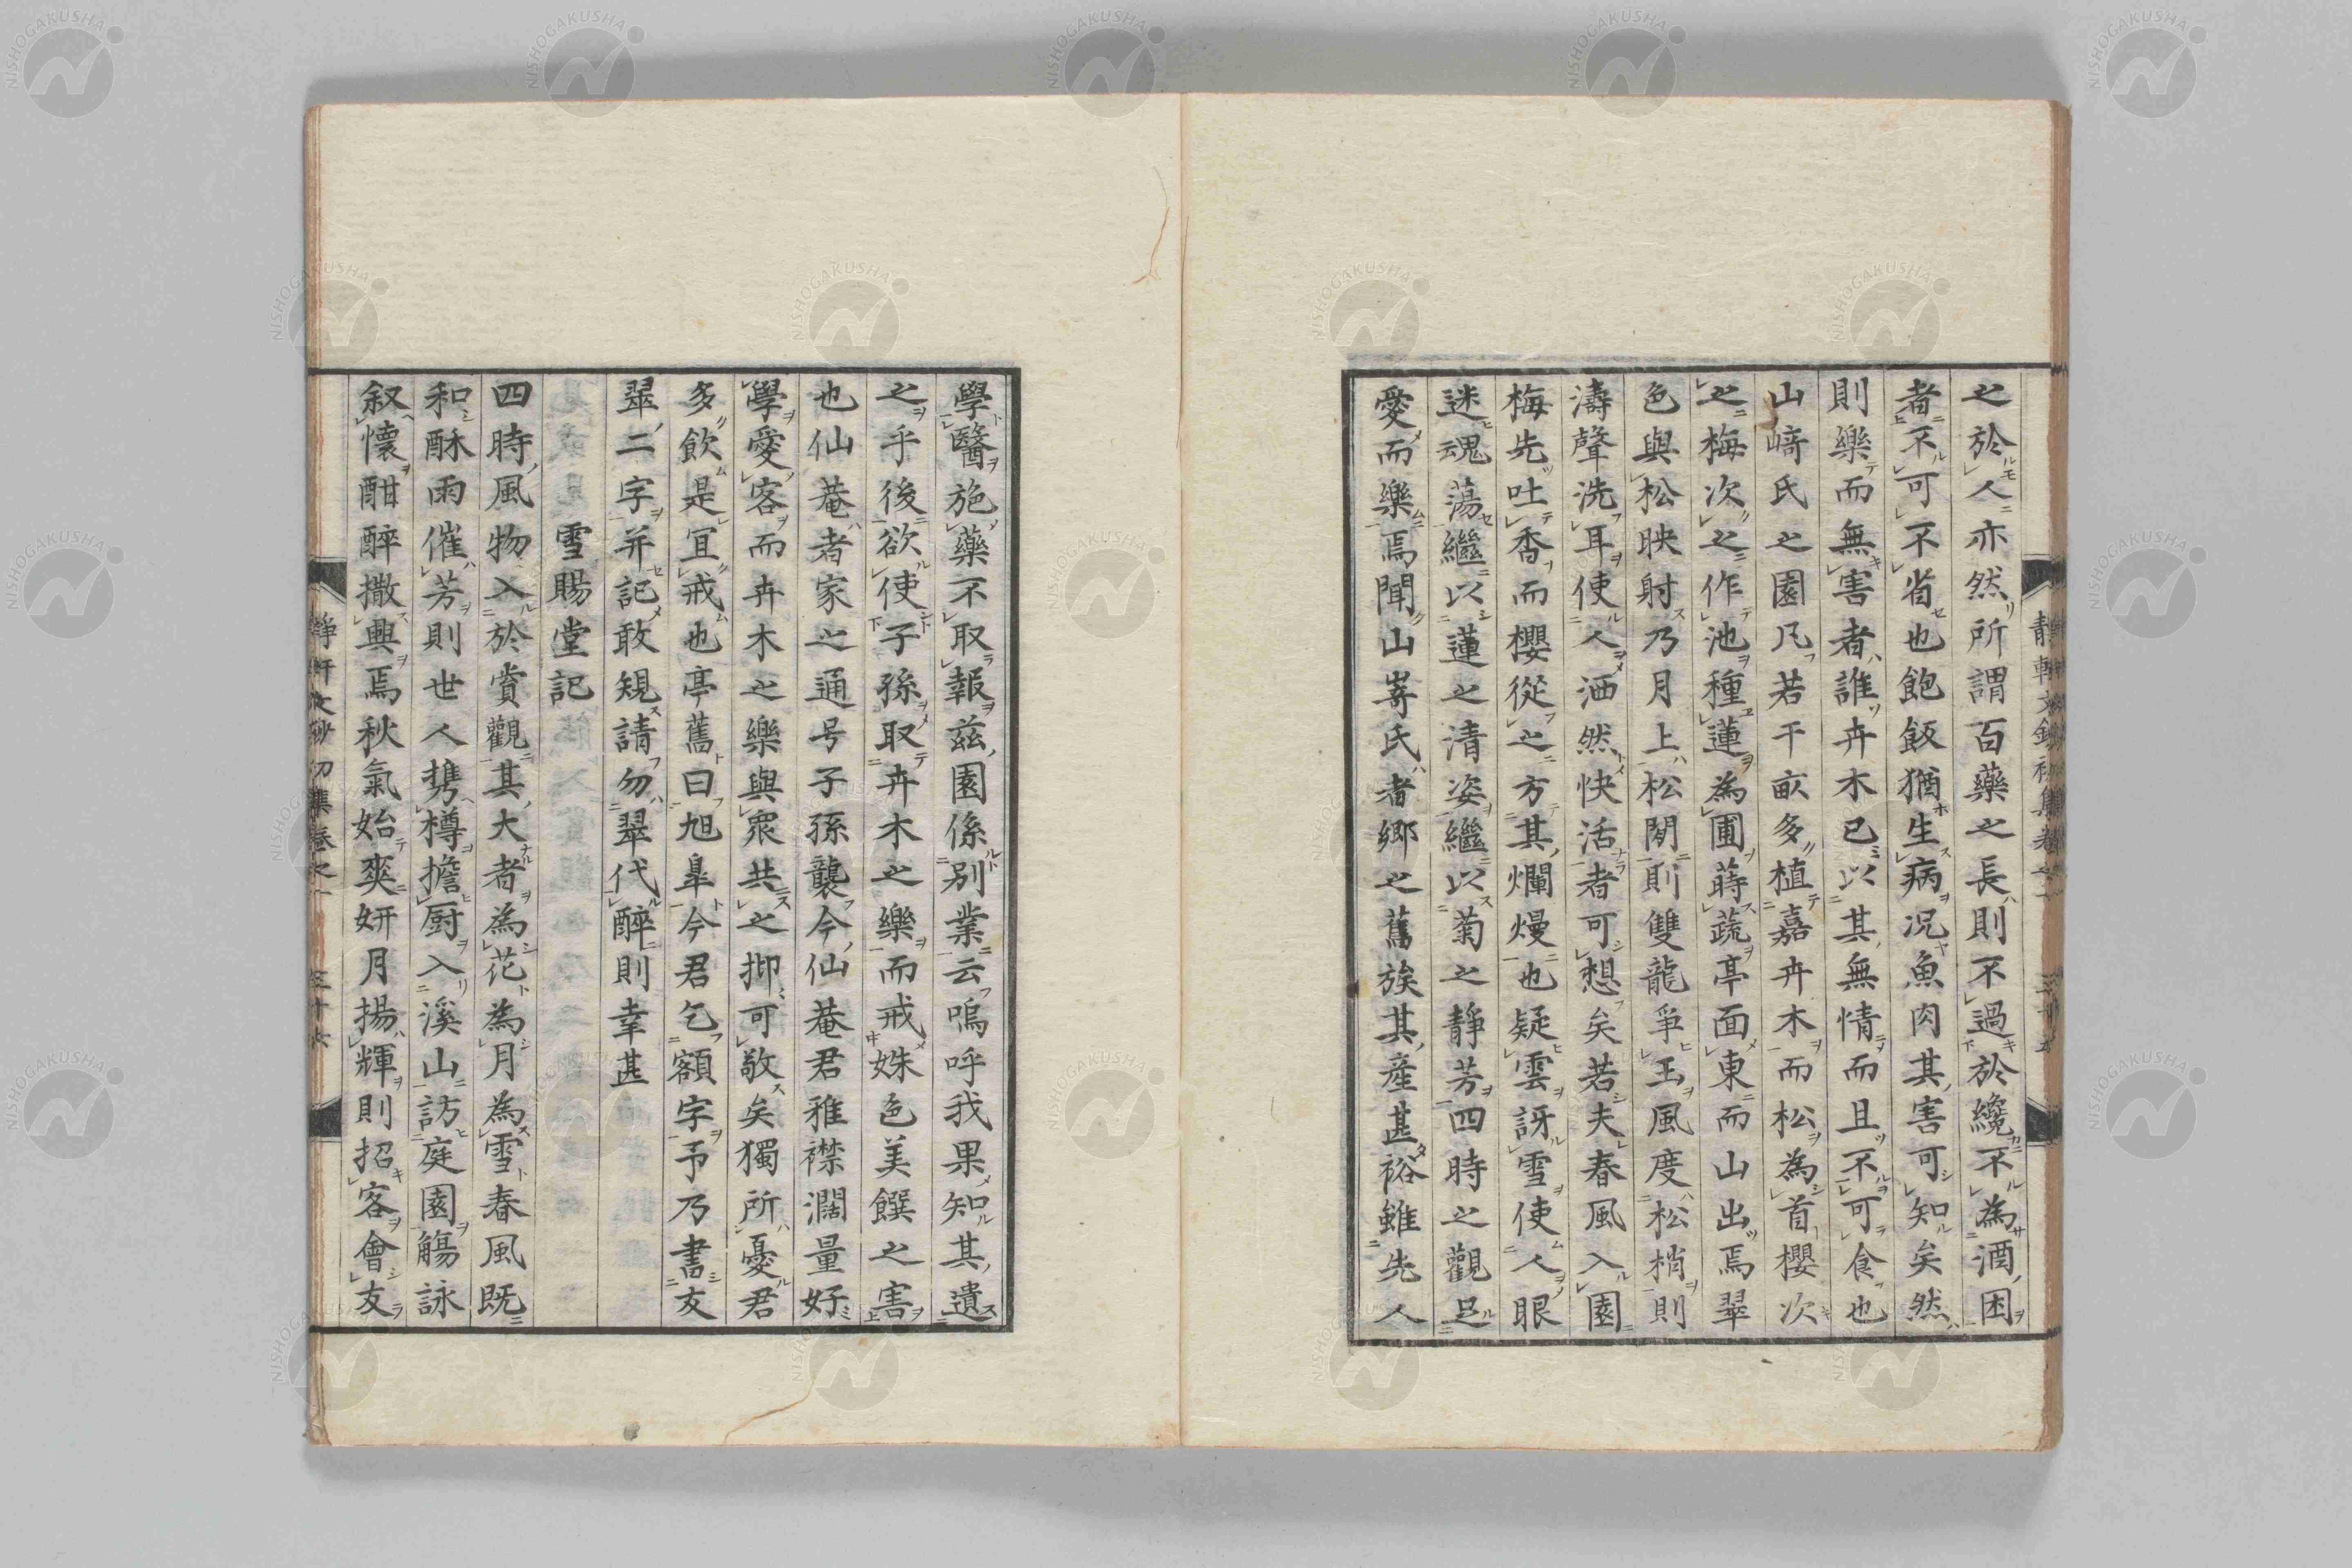 之於人亦然所謂百藥之長則不過於纔不為酒困
者不可不省也飽飯猶生病况魚肉其害可知矣然
則樂而無害者誰卉木已以其無情而且不可食也
山﨑氏之園凡若干畝多植嘉卉木而松為首櫻次
之梅次之作池種蓮為圃蒔蔬亭面東而山出焉翠
色與松映射乃月上松閒則雙龍爭玉風度松梢則
濤聲洗耳使人洒然快活者可想矣若夫春風入園
梅先吐香而櫻從之方其爛熳也疑雲訝雪使人眼
迷魂蕩繼以蓮之清姿繼以菊之靜芳四時之觀足
愛而樂焉聞山嵜氏者鄉之舊族其產甚裕雖先人
學醫施藥不取報茲園係別業云嗚呼我果知其遺
之乎後欲使子孫取卉木之樂而戒姝色美饌之害
也仙菴者家之通号子孫襲今仙菴君雅襟濶量好
學愛客而卉木之樂與眾共之抑可敬矣獨所憂君
多飲是宜戒也亭舊曰旭皐今君乞額字予乃書友
翠二字并記敢規請勿翠代醉則幸甚
雪賜堂記
四時風物入於賞觀其大者為花為月為雪春風既
和酥雨催芳則世人携樽擔厨入溪山訪庭園觴詠
叙懷酣醉撒興焉秋氣始爽妍月揚輝則招客會友
靜軒文鈔初集卷之一 三十六
NISHOGAKUSHA